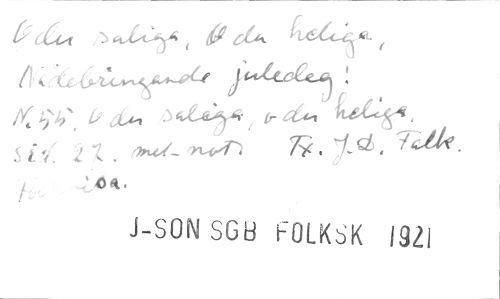 O du saliga, O du heliga,
Nådebringande juledag!
N. 55. O du saliga, o du heliga.
sid. 27. mel-not. Tx. J. D. Falk.
J-SON SGB FOLKSK 1921